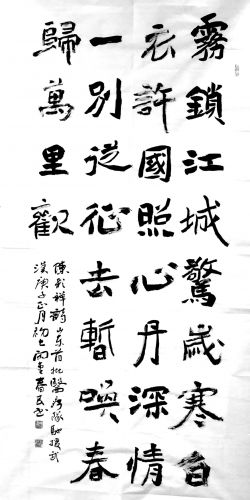 霧鎖江城驚歲寒白
衣許國照心丹深情
一別從征去暫喚春
歸萬里觀
陳彩祥韵山东首批醫療隊馳援武
漢庚子正月初七